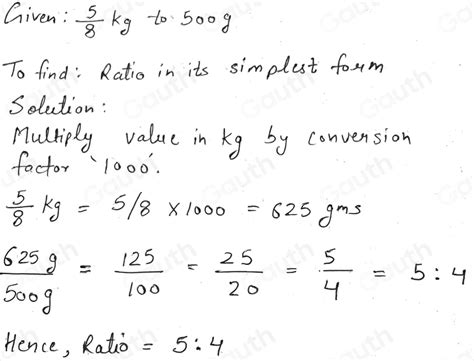 Given: 5/8 kg to 500g
To find: Ratio in its simplest form
Solution:
Multiply value in kg by conversion
factor '1000'.
5/8 kg = 5/8 × 1000 = 625 gms
625g/500g = 125/100 = 25/20 = 5/4 = 5:4
Hence, Ratio = 5:4
Gauth